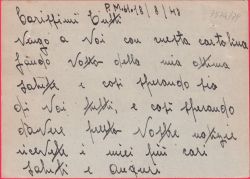 Carissimi Tutti
Vengo a voi con questa cartolina
dando della mia ottima
salute e così sperando sia
di voi tutti, e così sperando
d'avere presto Vostre notizie
ricevete i miei più cari
saluti e auguri